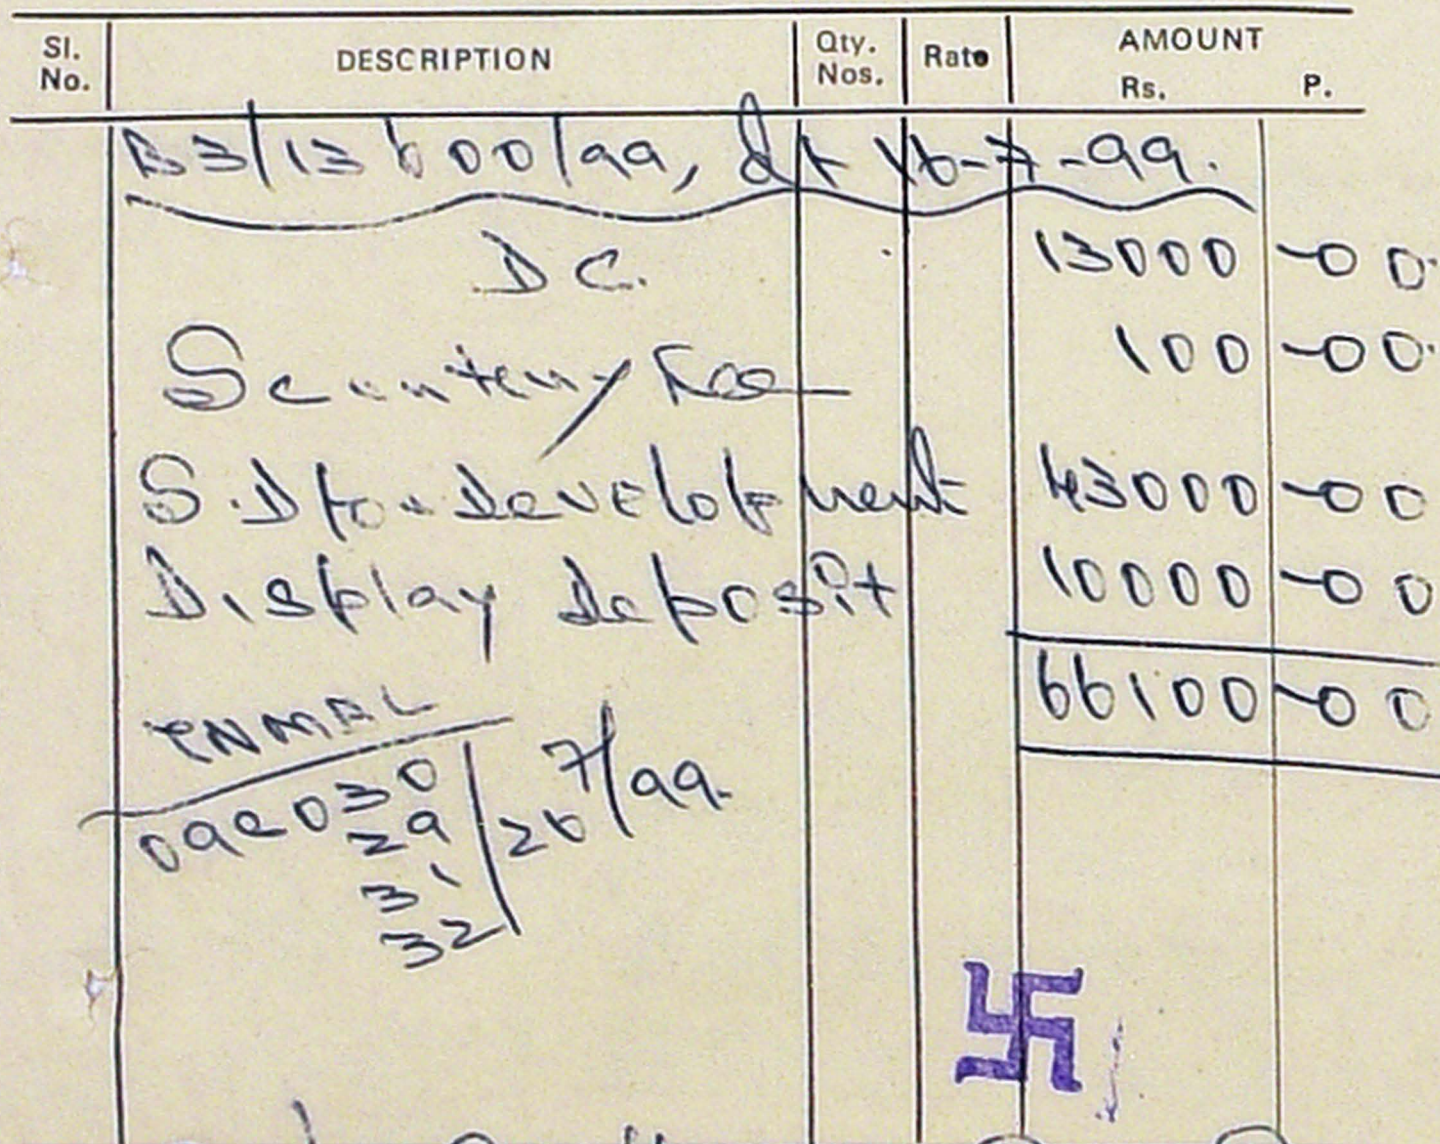 Sl. No. DESCRIPTION Qty. Nos. Rate AMOUNT Rs. P.
B3/13600/99, dt 16-7-99.
DC. 13000-00.
Scrutiny Fee 100-00.
S.D for Development 43000-00
Display deposit 10000-00
66100-00
092030
29
31
32
26/7/99.